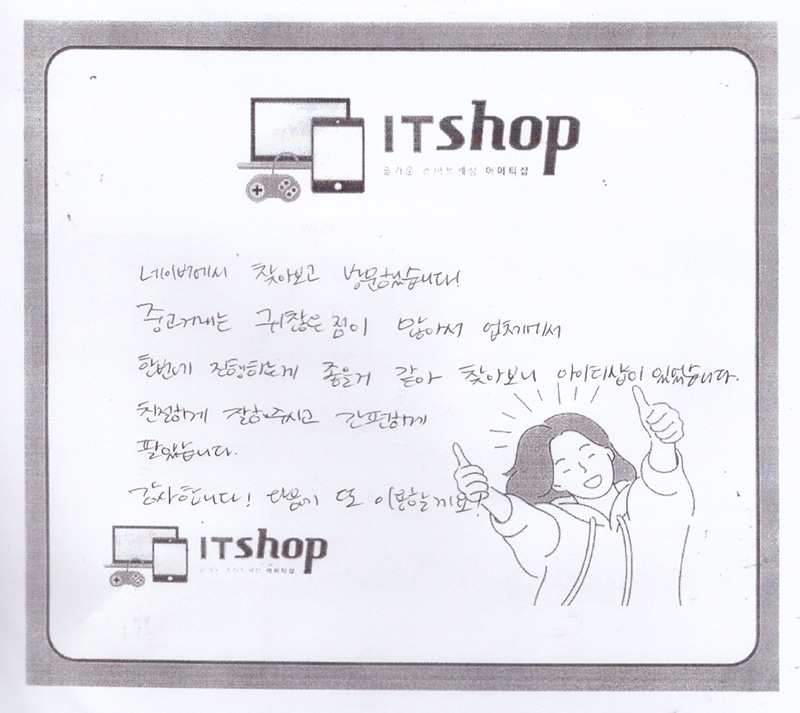 ITshop
즐거운 스마트세상 아이티샵
네이버에서 찾아보고 방문했습니다!
중고거래는 귀찮은 점이 많아서 업체에서
한번에 진행하는게 좋을거 같아 찾아보니 아이티샵이 있었습니다.
친절하게 잘해주시고 간편하게
팔았습니다.
감사합니다! 다음에 또 이용할게요?
ITshop
아이티샵